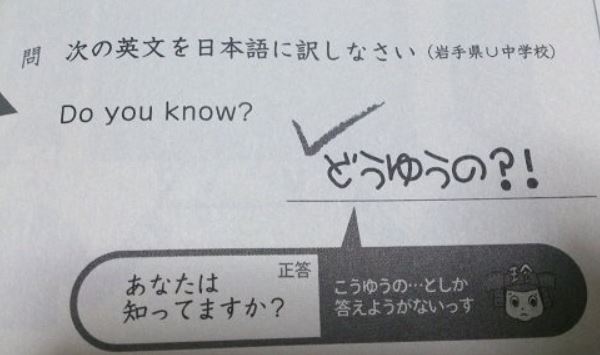 問 次の英文を日本語に訳しなさい（岩手県U中学校）
Do you know?
どうゆうの?!
正答
あなたは
知ってますか?
こうゆうの…としか
答えようがないっす
珍